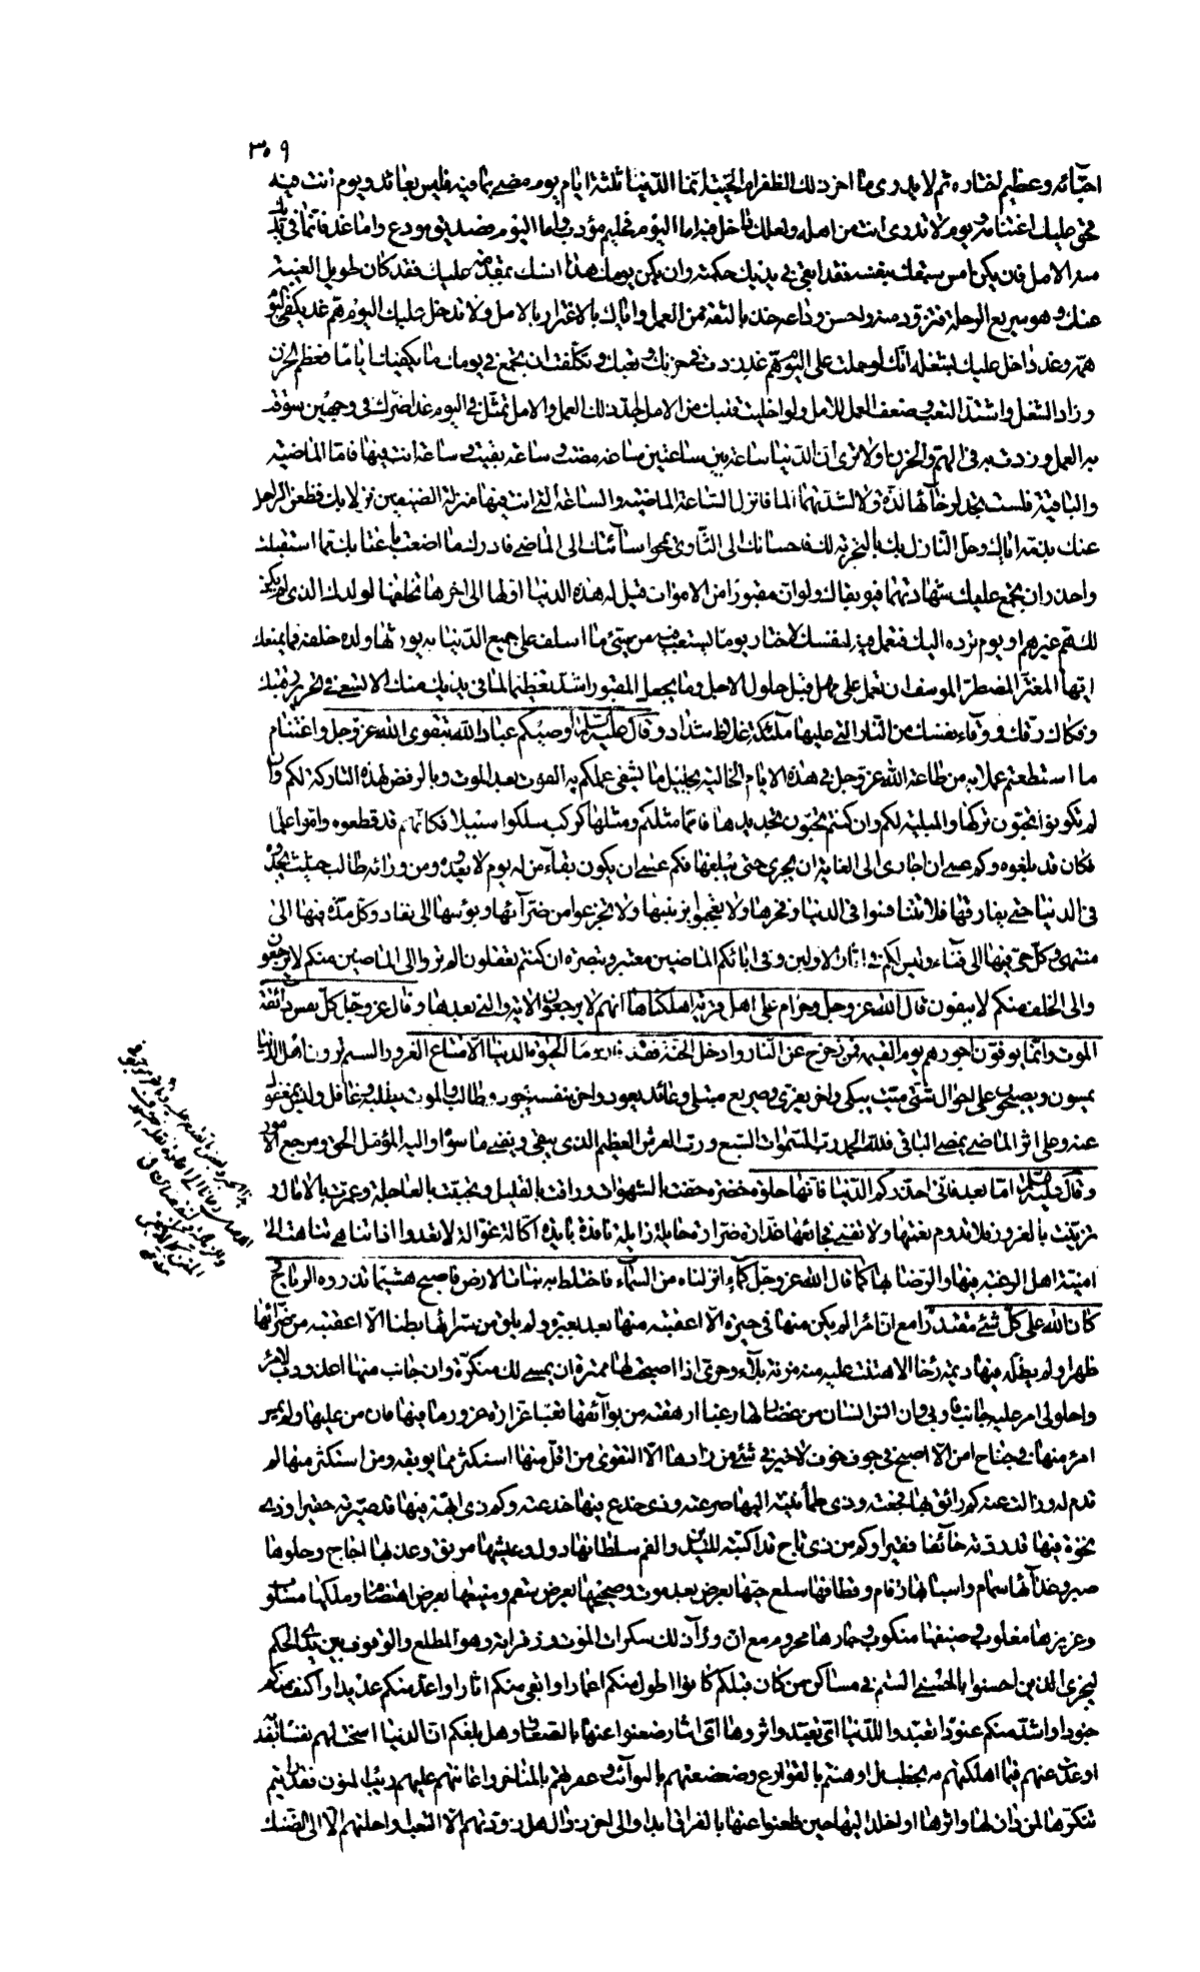 ٣٠٩
احبّائه وعظيم اخباره ثم لا يدرى ما اخر ذلك الظفر ام الخيبة انما الدنيا ثلثة ايام يوم مضى بما فيه فليس بعائد ويوم انت فيه
فحق عليك اغتنامه ويوم لا تدرى انت من اهله ولعلك راحل فيه اما اليوم فحكيم مؤدب واما اليوم فصديق مودع واما غد فانما فى يديك
منه الامل فان يكن امس سبقك بنفسه فقد ابقى فى يديك حكمته وان يكن يومك هذا انسك بمقدمه عليك فقد كان طويل الغيبة
عنك وهو سريع الرحلة فتزود منه واحسن وداعه خذ بالثقة من العمل واياك بالاغترار بالامل ولا تدخل عليك اليوم هم غد يكفى اليوم
همه وغد داخل عليك بشغله انك لو حملت على اليوم هم غد زدت فى حزنك وتعبك وتكلفت ان تجمع فى يومك ما يكفيك اياما فعظم الحزن
وزاد الشغل واشتد التعب وضعف العمل للامل ولو اخليت قلبك من الامل لجد ذلك العمل والامل تمثل فى اليوم غدا ضرك فى وجهين سوفت
به العمل وزدت به فى الهم والحزن اولا ترى ان الدنيا ساعة بين ساعتين ساعة مضت وساعة بقيت وساعة انت فيها فاما الماضية
والباقية فلست تجد لرخائهما لذة ولا لشدتهما الما فانزل الساعة الماضية والساعة التى انت فيها منزلة الضيفين نزلا بك فظعن الراحل
عنك بذمه اياك وحل النازل بك بالتجربة لك فاحسانك الى الثاوى يمحو اسائتك الى الماضى فادرك ما اضعت باغتنامك مما استقبلت
واحذر ان تجمع عليك شهادتهما فيوبقاك ولو ان مقبورا من الاموات قيل له هذه الدنيا اولها الى اخرها تخلفها لولدك الذى لم يكن
لك هم غيرهم او يوم نرده اليك فتعمل فيه لنفسك لاختار يوما يستعتب فيه من سيئ ما اسلف على جميع الدنيا به يورثها ولده خلفه فما يمنعك
ايها المغتر المضطر المسوف ان تعمل على مهل قبل حلول الاجل وما يجعل المقبور اشد تعظيما لما فى يديك منك الا تسعى فى تحرير رقبتك
وفكاك رقك ووقاء نفسك من النار التى عليها ملئكة غلاظ شداد وقال عليه السلام اوصيكم عباد الله بتقوى الله عز وجل واغتنام
ما استطعتم عملا به من طاعة الله عز وجل فى هذه الايام الخالية بجليل ما يشفى عملكم به الفوت بعد الموت وبالرفض لهذه التاركة لكم وان
لم تكونوا تحبون تركها والمبلية لكم وان كنتم تحبون تجديدها فانما مثلكم ومثلها كركب سلكوا سبيلا فكانهم قد قطعوه واموا علما
فكان قد بلغوه وكم عسى ان اجارى الى الغاية ان يجرى حتى يبلغها فكم عسى ان يكون بقاء من له يوم لا يعدوه ومن ورائه طالب حثيث يحدوه
فى الدنيا حتى يفارقها فلا تتنافسوا فى الدنيا وفخرها ولا تعجبوا بزينتها ولا تجزعوا من ضرائها وبؤسها الى نفاد وكل مدة فيها الى
منتهى وكل حى فيها الى فناء وليس لكم فى اثار الاولين وفى ابائكم الماضين معتبر وتبصرة ان كنتم تعقلون الم تروا الى الماضين منكم لا يرجعون
والى الخلف منكم لا يبقون قال الله عز وجل وحرام على اهل قرية اهلكناها انهم لا يرجعون الاية والتى بعدها وقال عز وجل كل نفس ذائقة
الموت وانما يوفون اجورهم يوم القيمة فمن زحزح عن النار وادخل الجنة فقد فاز وما الحيوة الدنيا الا متاع الغرور السم ترون اهل الدنيا
يمسون ويصبحون على احوال شتى ميت يبكى واخر يعزى وصريع مبتلى وعائد يعود واخر بنفسه يجود وطالب والموت يطلبه وغافل وليس بمغفول
عنه وعلى اثر الماضى يمضى الباقى فلله الحمد رب السموات السبع ورب العرش العظيم الذى يبقى ويفنى ما سواه واليه المؤئل الحق ومرجع الامور
وقال عليه السلم اما بعد فانى احذركم الدنيا فانها حلوة خضرة حفت بالشهوات وراقت بالقليل وتحببت بالعاجلة وعمرت بالامال و
تزينت بالغرور فلا تدوم نعمتها ولا تفنى فجائعها غدارة ضرارة حائلة زايلة نافدة بايدة اكالة غوالة لا تعدوا اذا تناهت الى
امنية اهل الرغبة فيها والرضا بها كما قال الله عز وجل كماء انزلناه من السماء فاختلط به نبات الارض فاصبح هشيما تذروه الرياح و
كان الله على كل شئ مقتدرا مع ان امرا لم يكن منها فى حبرة الا اعقبته منها بعد بعبرة ولم يلق من سرائها بطنا الا اعقبته من ضرائها
ظهرا ولم يطله فيها ديمة رخا الا هتنت عليه منه مزنة بلاء وحرى اذا اصبحت لها ممترة ان يمسى لك منكرة وان جانب منها اعذوذب لامرء
واحلولى امر عليه جانب واوبى وان انس انسان من غضارتها رغبا ارهقته من بوائقها تعبا غرارة غرور ما فيها فان من عليها ولم يمس
امرء منها فى جناح امن الا اصبح فى جوف خوف لا خير فى شئ من زادها الا التقوى من اقل منها استكثر مما يوبقه ومن استكثر منها لم
تدم له وزالت عنه كم واثق بها فجعته وذى طمأنينة اليها صرعته وذى خدع فيها خدعته وكم ذى ابهة فيها قد صيرته حقيرا وذى
نخوة فيها قد ردته خائفا فقيرا وكم من ذى تاج قد اكبته لليدين والفم سلطانها دول وعيشها مر رنق وعذبها اجاج وحلوها
صبر وغذائها سمام واسبابها رمام وقطافها سلع حيها بعرض بعد موت وصحيحها بعرض سقم ومنيعها بعرض اهتضام وملكها مسلوب
وعزيزها مغلوب وضيفها منكوب وجارها محروم مع ان وراء ذلك سكرات الموت وزفراته وهول المطلع والوقوف بين يدى الحكم
ليجزى الذين احسنوا بالحسنى الستم فى مساكن من كان قبلكم كانوا اطول منكم اعمارا وابقى منكم اثارا واعد منكم عديدا واكثف منكم
جنودا واشد منكم عنودا تعبدوا للدنيا اى تعبد واثروها اى ايثار ظعنوا عنها بالصغار وهل بلغكم ان الدنيا اسخت لهم نفسا بفدية
او عدت عنهم فيما اهلكتهم به بخطب بل اوهنتهم بالقوارع وضعضعتهم بالنوائب وعقرتهم بالمناخر واعانتهم عليهم ريب المنون فقد رايتم
تنكرها لمن دان لها واثرها او اخلد اليها حين ظعنوا عنها بالفراق ابدا والى اخر زوال هل زودتهم الا التعب واحلتهم الا الى الضنك